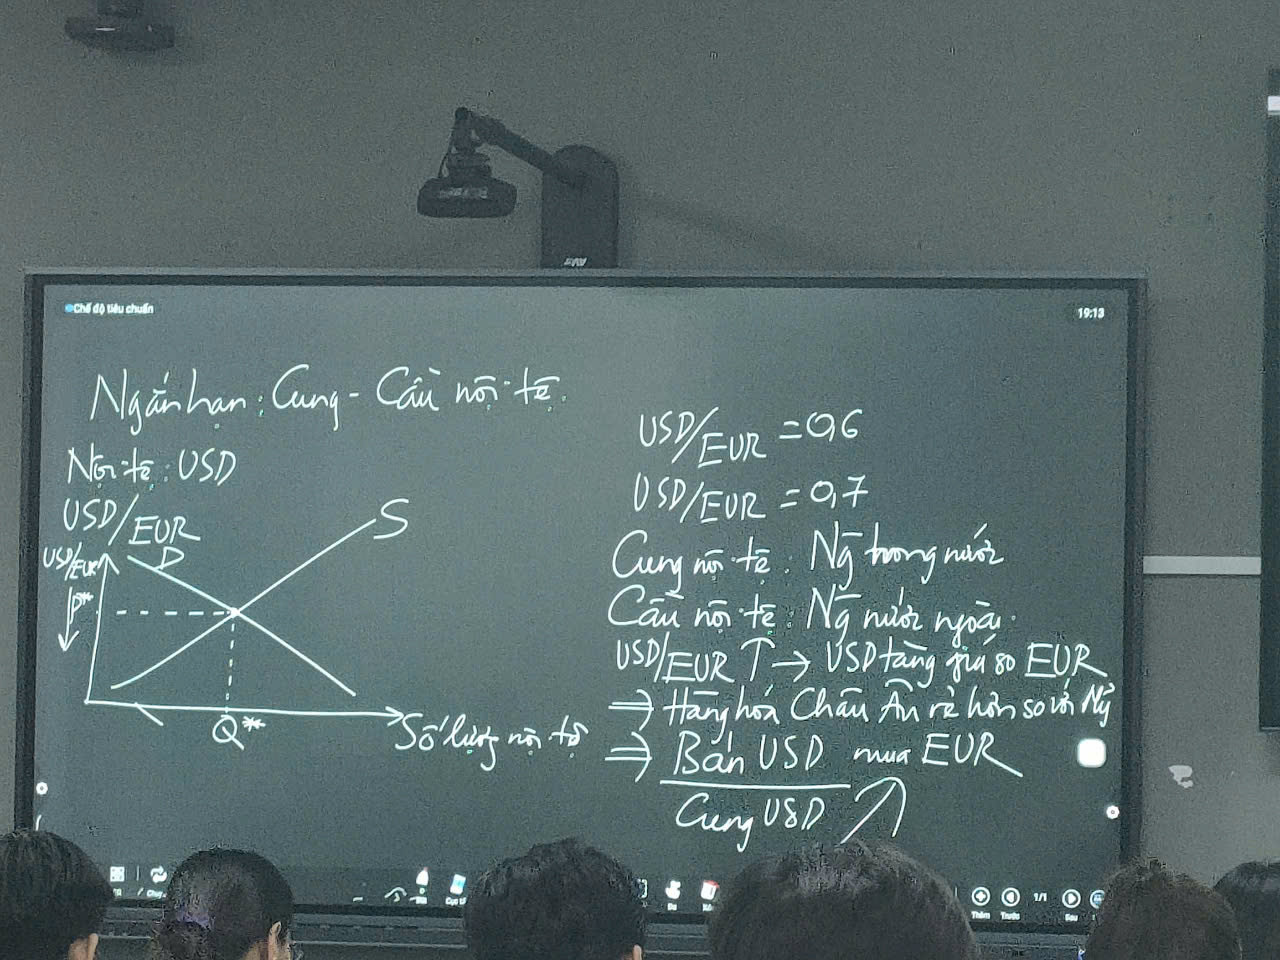 Chế độ tiêu chuẩn
19:13
Ngắn hạn: Cung - Cầu nội tệ.
Nội tệ: USD
USD/EUR
USD/EUR
D
S
P*
Q*
Số lượng nội tệ
USD/EUR = 0,6
USD/EUR = 0,7
Cung nội tệ: Ng̃ trong nước
Cầu nội tệ: Ng̃ nước ngoài.
USD/EUR ↑ → USD tăng giá so EUR
⇒ Hàng hóa Châu Âu rẻ hơn so với Mỹ
⇒ Bán USD mua EUR
Cung USD ↗
AVer
Thêm
Trước
1/1
Sau